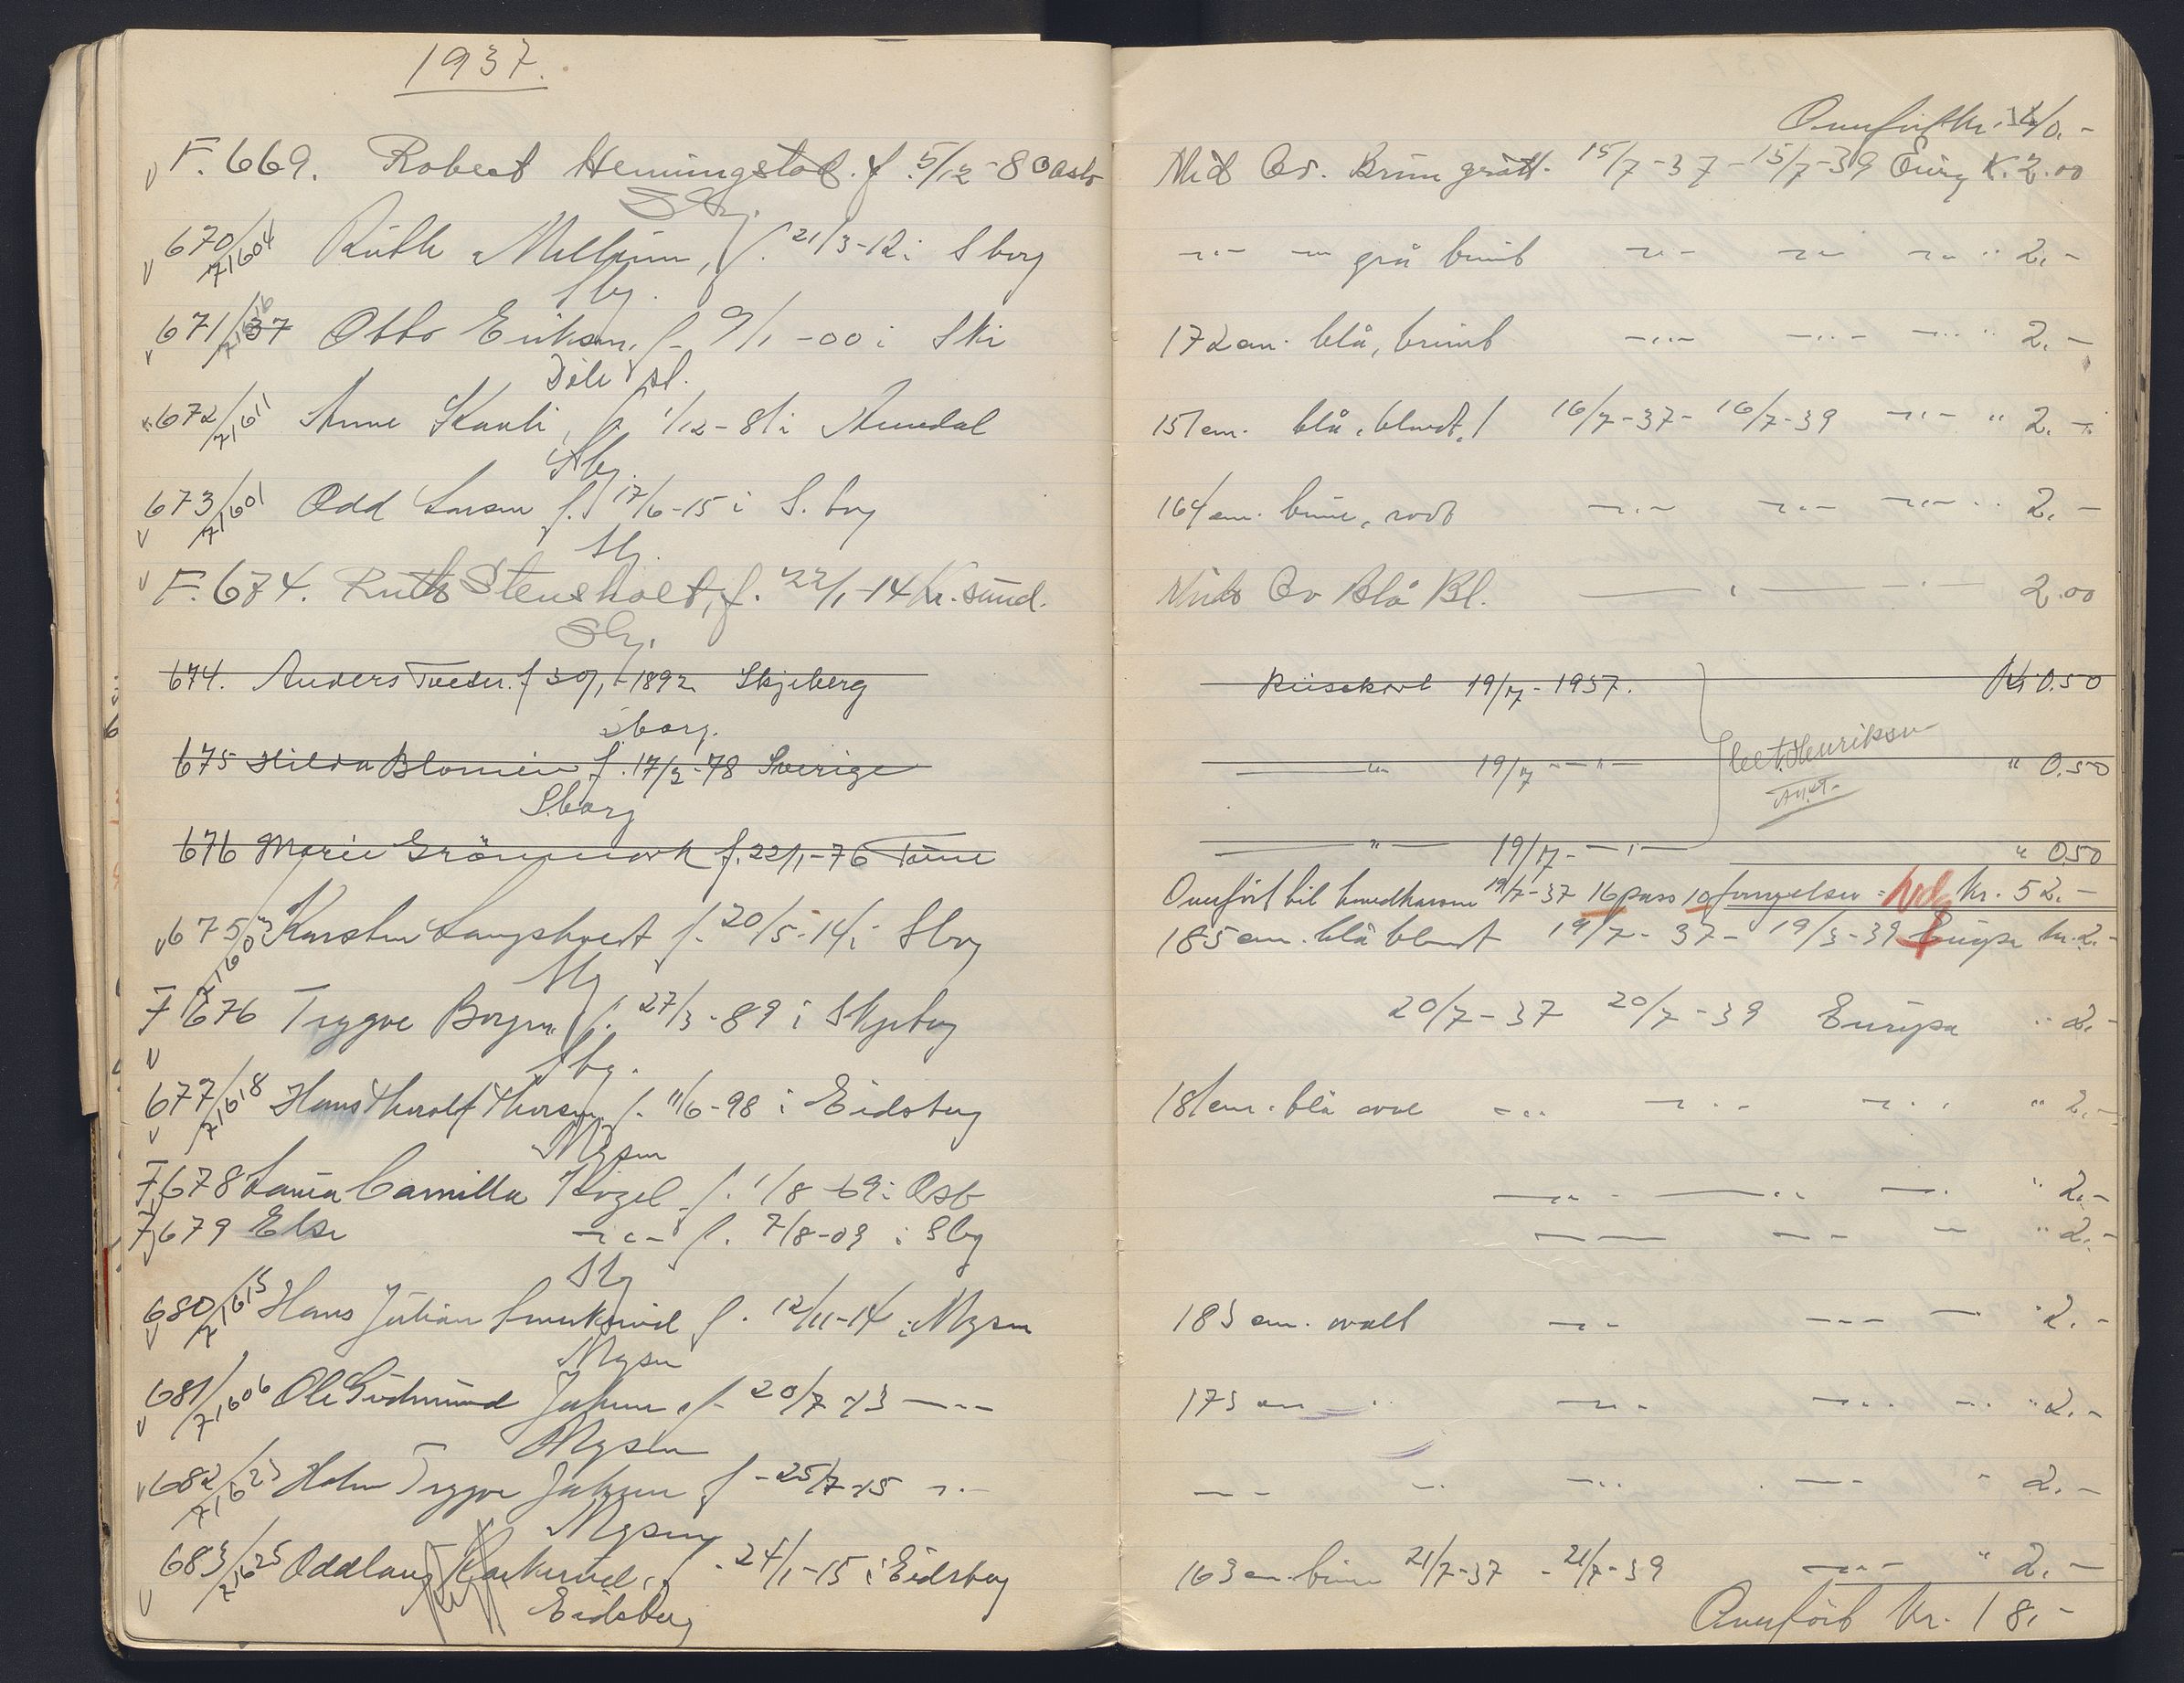 1937.
F. 669. Robert Hemingstad. f. 5/12-80 Oslo
Sbg.
670/71604 Ruth Mellum, f. 21/3-12 i Sborg
Sbg.
671/37 Otto Eriksen, f. 9/1-00 i Ski
Dele st.
672/71611 Anne Skauli, f. 1/12-81 i Arendal
Sbg.
673/71601 Odd Larsen f. 17/6-15 i S.borg
Sbg.
F. 674. Ruth Stensholt, f. 22/1-14 Kr.sund.
Sbg.
674. Anders Tveter. f 30/1-1892 Skjeberg
Sborg.
675 Hilda Blomén f. 17/2-78 Sverige
S.borg
676 Marie Grönmark f. 22/1-76 Tune
675/71603 Karsten Langholt f. 20/5-14 i Sborg
Sbg
F 676 Trygve Borgen f. 27/3-89 i Skjeberg
Sbg.
677/71618 Hans Thoralf Thorsen f. 11/6-98 i Eidsberg
Mysen
F. 678 Laura Camilla Kozel f. 1/8-69 i Oslo
F. 679 Else -"- f. 7/8-09 i Sbg
Sbg
680/71615 Hans Julian f. 12/11-14 i Mysen
Mysen
681/71606 Ole Gudmund Jahren f. 20/7-13 -"-
Mysen
682/71623 Holm Trygve Jahren f - 25/7-15 -"-
Mysen
683/71625 Oddlaug f. 24/1-15 i Eidsberg
Eidsberg
Overfört kr. 140.-
Mid. Ov. Brun grått. 15/7-37 - 15/7-39 Europ K. 2.00
-"- -"- grå brunt -"- -"- -"- " 2.-
172 cm. blå, brunt -"- -"- -"- " 2.-
151 cm. blå, blondt, 16/7-37 - 16/7-39 -"- " 2.-
164 cm. brune, rodt -"- -"- -"- " 2.-
Mid Ov Blå Bl. -"- -"- 2.00
Reisekort 19/7-1937. Kr 0.50
-"- 19/7 -"- " 0.50
Henriksen
-"- 19/7 -"- " 0.50
Overfört til hovedkassen 19/7-37 16 pass 10 fornyelser = kr. 52.-
185 cm. blå blondt 19/7-37 - 19/3-39 Europa kr. 2.-
20/7-37 20/7-39 Europa " 2.-
181 cm. blå oval -"- -"- -"- " 2.-
-"- -"- -"- " 2.-
-"- -"- -"- " 2.-
183 cm. ovalt -"- -"- -"- " 2.-
173 cm -"- -"- -"- -"- " 2.-
-"- -"- -"- -"- " 2.-
163 cm. brun 21/7-37 - 21/7-39 -"- " 2.-
Overfört kr. 18.-